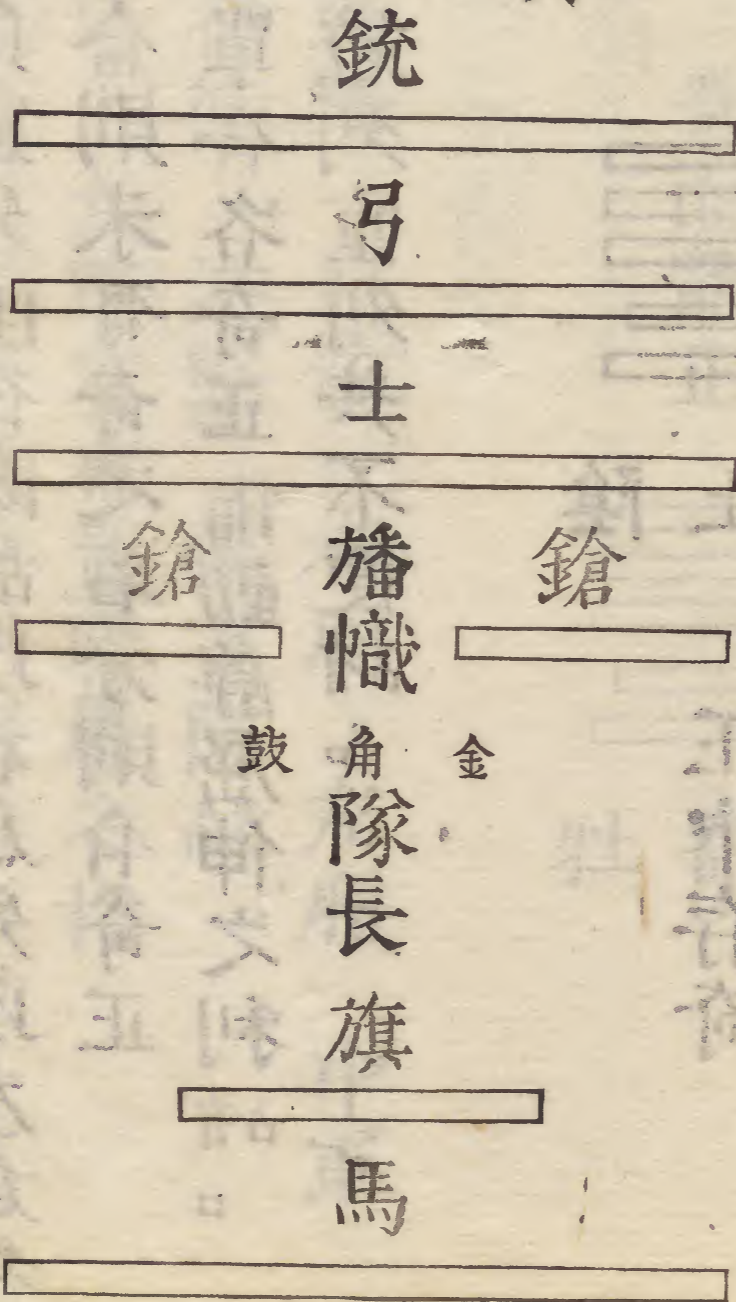 銃
弓
士
鎗 旛幟 鎗
鼓 角 金
隊長
旗
馬